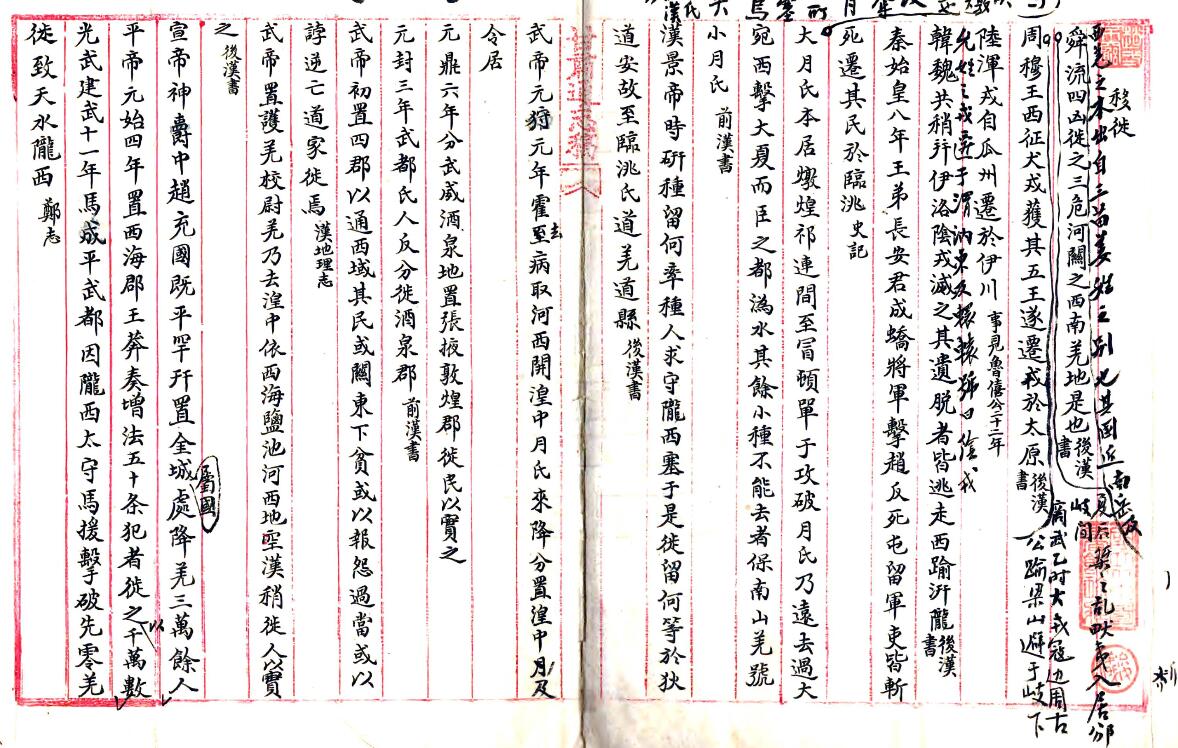 移徙
西羌之本出自三苗姜姓之别也其國近南岳及
舜流四凶徙之三危河關之西南羌地是也後漢書
夏后桀之乱畎夷入居邠岐間
周穆王西征犬戎獲其五王遂遷戎於太原後漢書
武乙时犬戎寇边周古公踰梁山避于岐下
陸渾戎自瓜州遷於伊川 事見魯僖公二十二年
允姓之戎遷于渭汭東及轘轅號曰陰戎
韓魏共稍幷伊洛陰戎滅之其遺脱者皆逃走西踰汧隴後漢書
秦始皇八年王弟長安君成蟜將軍擊趙反死屯留軍吏皆斬
死遷其民於臨洮 史記
大月氏本居燉煌祁連間至冒頓單于攻破月氏乃遠去過大
宛西擊大夏而臣之都潙水其餘小種不能去者保南山羌號
小月氏 前漢書
漢景帝時硏種留何率種人求守隴西塞于是徙留何等於狄
道安故至臨洮氏道羌道縣 後漢書
甘肅通志稿
武帝元狩元年霍去病取河西開湟中月氏來降分置湟中月及
令居
元鼎六年分武威酒泉地置張掖敦煌郡徙民以實之
元封三年武都氐人反分徙酒泉郡 前漢書
武帝初置四郡以通西域其民或關東下貧或以報怨過當或以
誖逆亡道家徙焉 漢地理志
武帝置護羌校尉羌乃去湟中依西海鹽池河西地空漢稍徙人以實
之 後漢書
宣帝神爵中趙充國既平罕幵置金城屬國處降羌三萬餘人
平帝元始四年置西海郡王莽奏增法五十条犯者徙之以千萬數
光武建武十一年馬成平武都因隴西太守馬援擊破先零羌
徙致天水隴西 鄭志